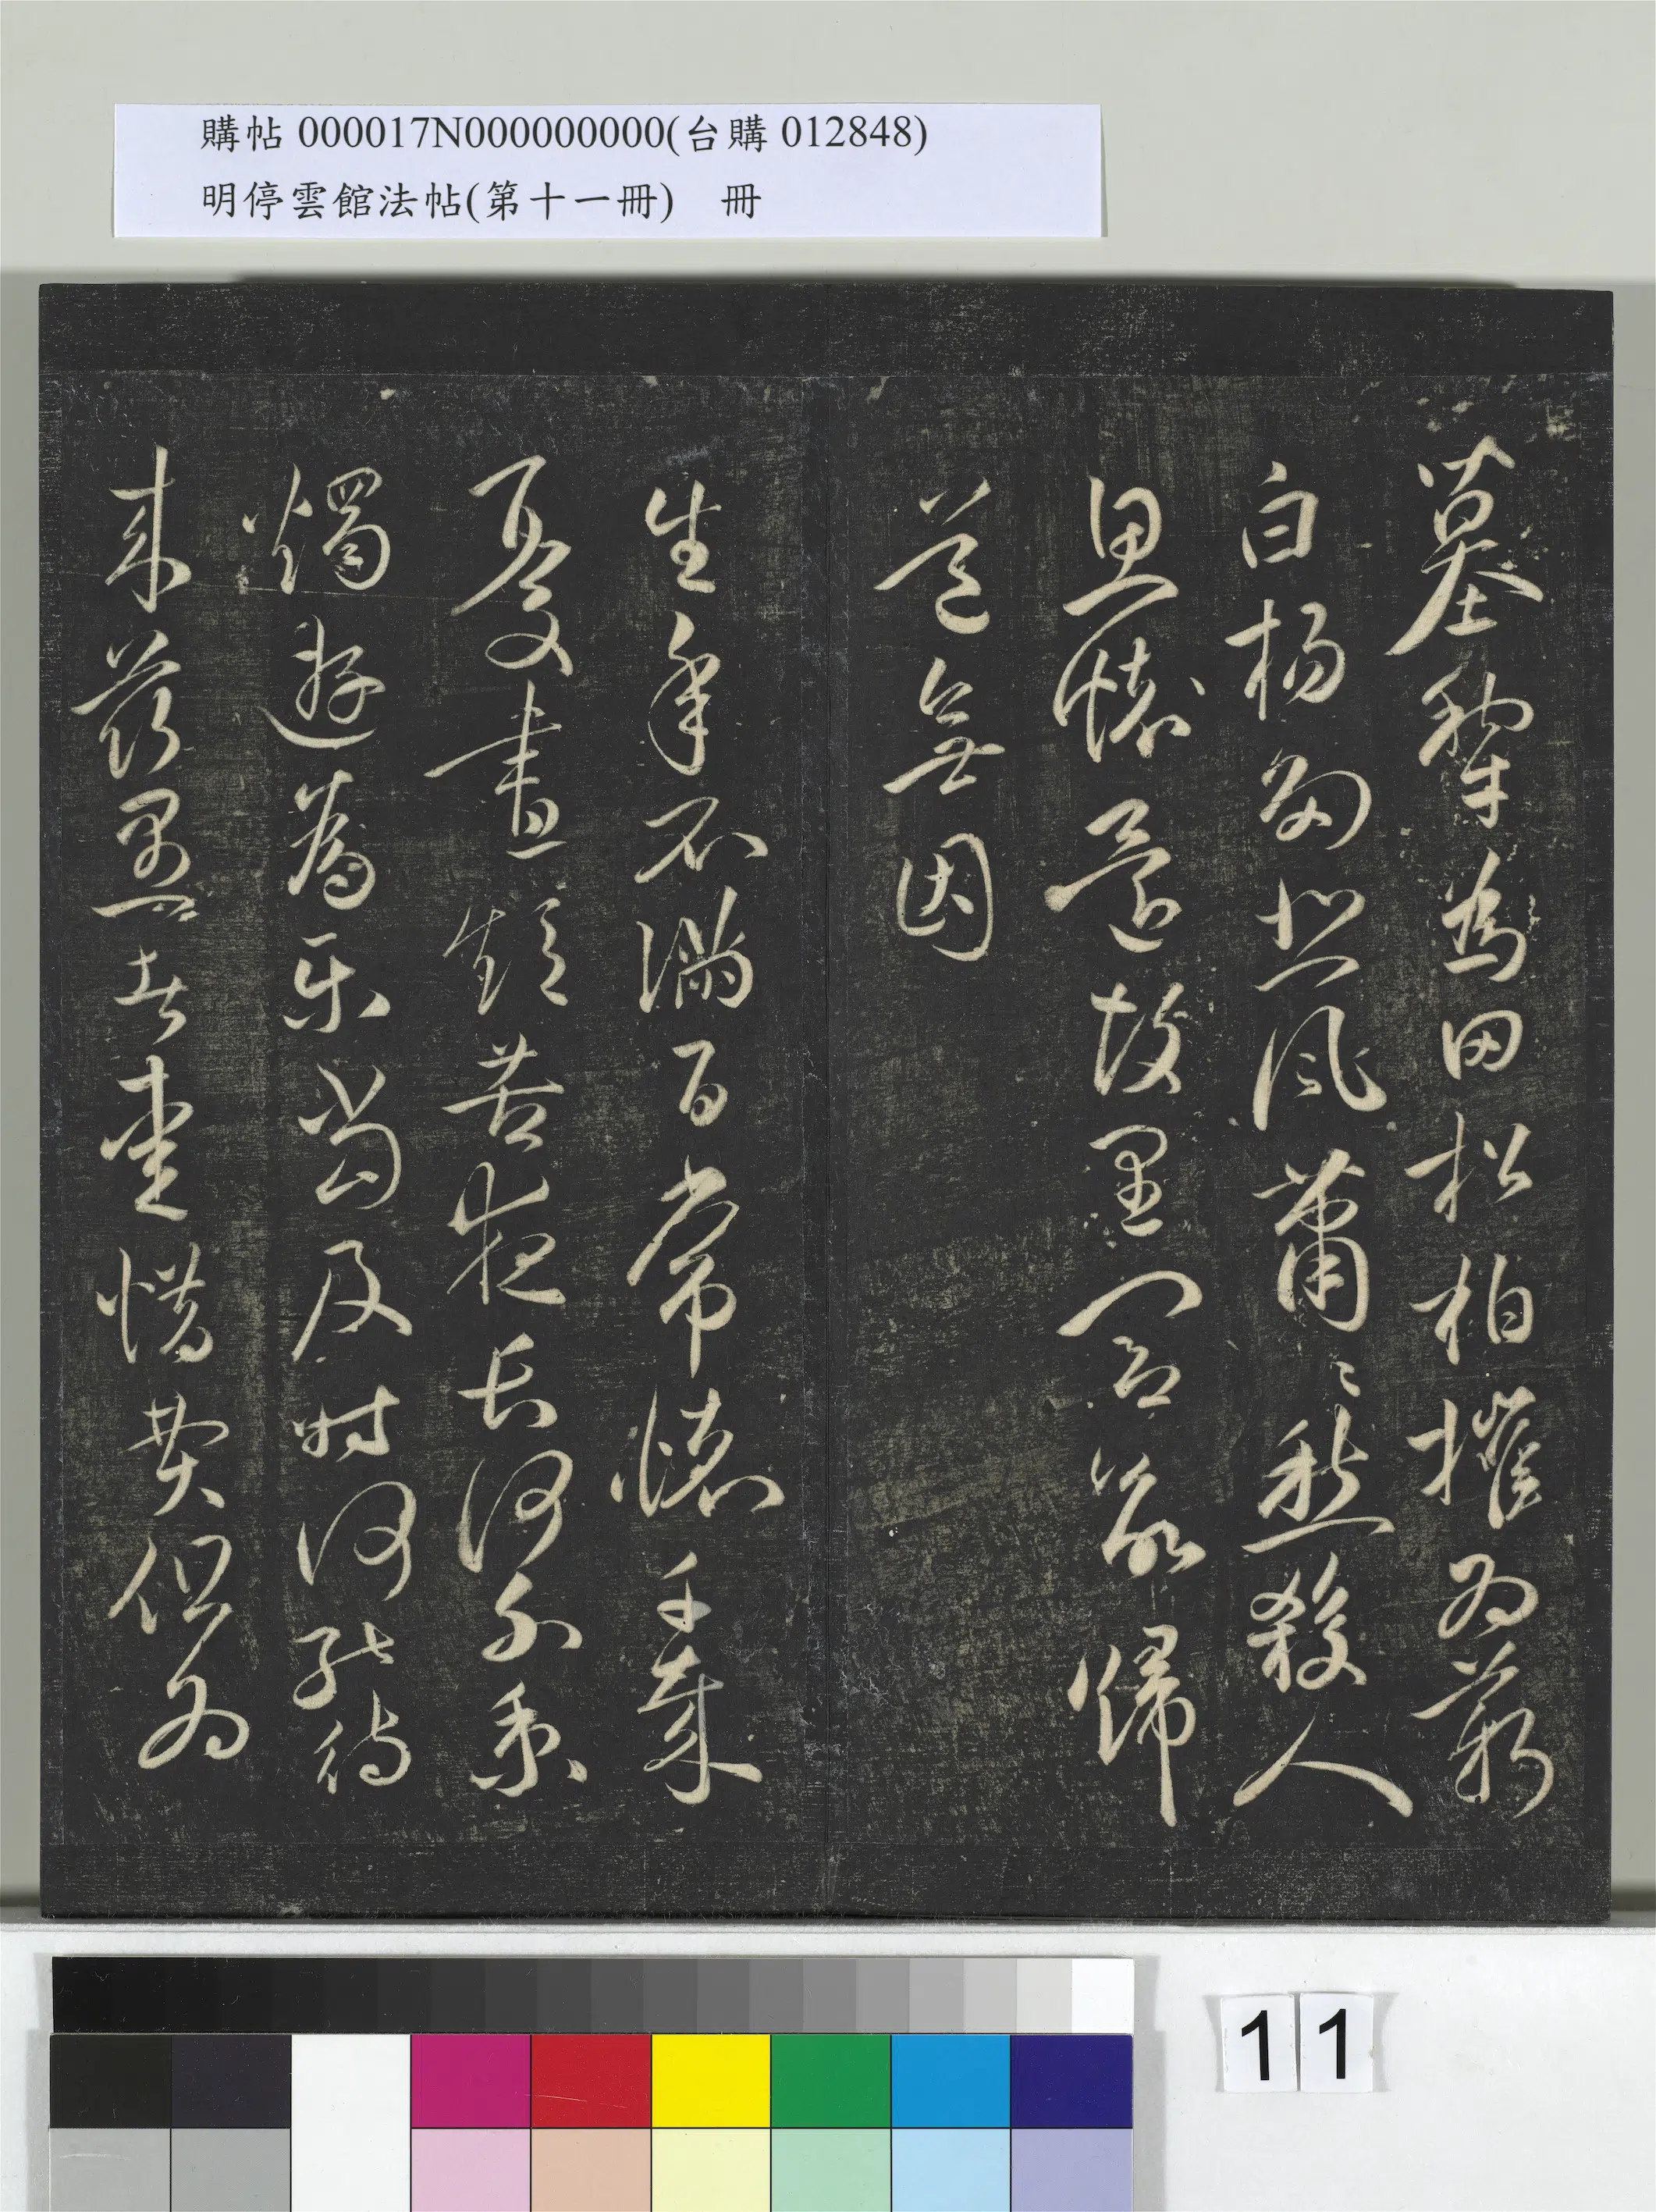 購帖 000017N000000000(台購 012848)
明停雲館法帖(第十一冊) 冊
墓犂為田松柏摧為薪
白楊多悲風蕭〻愁殺人
思懷還故里閭欲歸
道無因
生年不滿百常懷千歲
憂晝短苦夜長何不秉
燭遊為樂當及時何能待
來茲愚者愛惜費但為
11